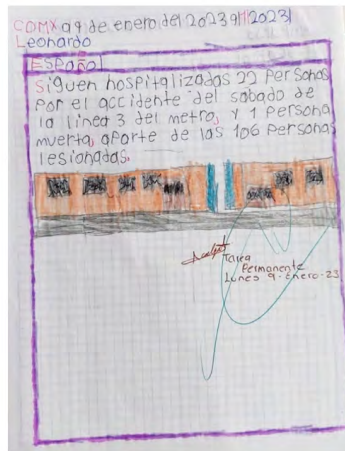 CDMX a 9 de enero del 2023 9/1/2023
Leonardo
Español
Siguen hospitalizadas 22 personas
por el accidente del sabado de
la linea 3 del metro, y 1 persona
muerta, aparte de las 106 personas
lesionadas.
Tarea
Permanente
Lunes 9-enero-23